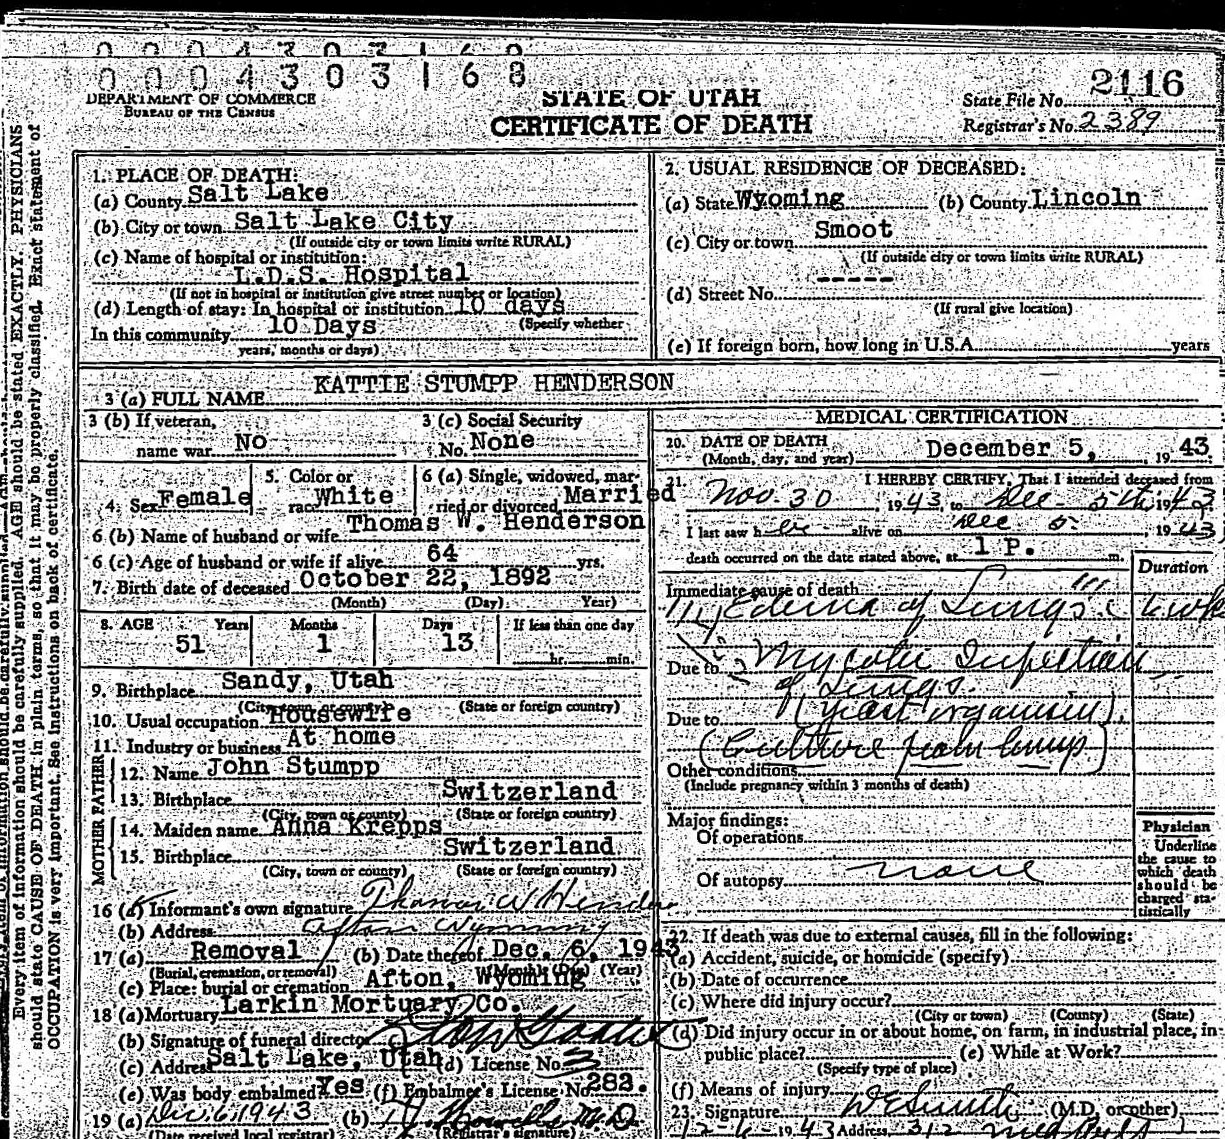 0004303168
DEPARTMENT OF COMMERCE
BUREAU OF THE CENSUS
STATE OF UTAH
CERTIFICATE OF DEATH
State File No. 2116
Registrar's No. 2389
1. PLACE OF DEATH:
(a) County Salt Lake
(b) City or town Salt Lake City
(If outside city or town limits write RURAL)
(c) Name of hospital or institution:
L.D.S. Hospital
(If not in hospital or institution give street number or location)
(d) Length of stay: In hospital or institution 10 days
(Specify whether
In this community 10 Days
years, months or days)
2. USUAL RESIDENCE OF DECEASED:
(a) State Wyoming (b) County Lincoln
(c) City or town Smoot
(If outside city or town limits write RURAL)
(d) Street No. -----
(If rural give location)
(e) If foreign born, how long in U.S.A. years
3 (a) FULL NAME KATTIE STUMPP HENDERSON
3 (b) If veteran, name war No
3 (c) Social Security No. None
4. Sex Female
5. Color or race White
6 (a) Single, widowed, married or divorced Married
6 (b) Name of husband or wife Thomas W. Henderson
6 (c) Age of husband or wife if alive 64 yrs.
7. Birth date of deceased October 22, 1892
(Month) (Day) Year)
8. AGE Years Months Days If less than one day
51 1 13 hr. min.
9. Birthplace Sandy, Utah
(City, town or county) (State or foreign country)
10. Usual occupation Housewife
11. Industry or business At home
FATHER
12. Name John Stumpp
13. Birthplace Switzerland
(City, town or county) (State or foreign country)
MOTHER
14. Maiden name Anna Krepps
15. Birthplace Switzerland
(City, town or county) (State or foreign country)
16 (a) Informant's own signature Thomas W Henderson
(b) Address Afton Wyoming
17 (a) Removal (b) Date thereof Dec. 6, 1943
(Burial, cremation, or removal) (Month) (Day) (Year)
(c) Place: burial or cremation Afton, Wyoming
18 (a) Mortuary Larkin Mortuary Co.
(b) Signature of funeral director
(c) Address Salt Lake, Utah (d) License No. 3
(e) Was body embalmed Yes (f) Embalmer's License No. 282.
19 (a) Dec. 6, 1943 (b) M.D.
(Date received local registrar) (Registrar's signature)
MEDICAL CERTIFICATION
20. DATE OF DEATH
(Month, day, and year) December 5, 1943
21. I HEREBY CERTIFY, That I attended deceased from
Nov. 30 1943, to Dec - 5th 1943
I last saw her alive on Dec 5 1943
death occurred on the date stated above, at 1 P. m.
Duration
Immediate cause of death
Edema of Lungs
Due to Mycotic Infection
of Lungs.
Due to (yeast organism)
(Culture from lungs)
Other conditions
(Include pregnancy within 3 months of death)
Major findings:
Of operations
Of autopsy none
Physician
Underline the cause to which death should be charged statistically
22. If death was due to external causes, fill in the following:
(a) Accident, suicide, or homicide (specify)
(b) Date of occurrence
(c) Where did injury occur?
(City or town) (County) (State)
(d) Did injury occur in or about home, on farm, in industrial place, in
public place? (e) While at Work?
(Specify type of place)
(f) Means of injury
23. Signature (M.D. or other)
12-6-1943 Address 312
Every item of information should be carefully supplied. AGE should be stated EXACTLY. PHYSICIANS
should state CAUSE OF DEATH in plain terms, so that it may be properly classified. Exact statement of
OCCUPATION is very important. See instructions on back of certificate.